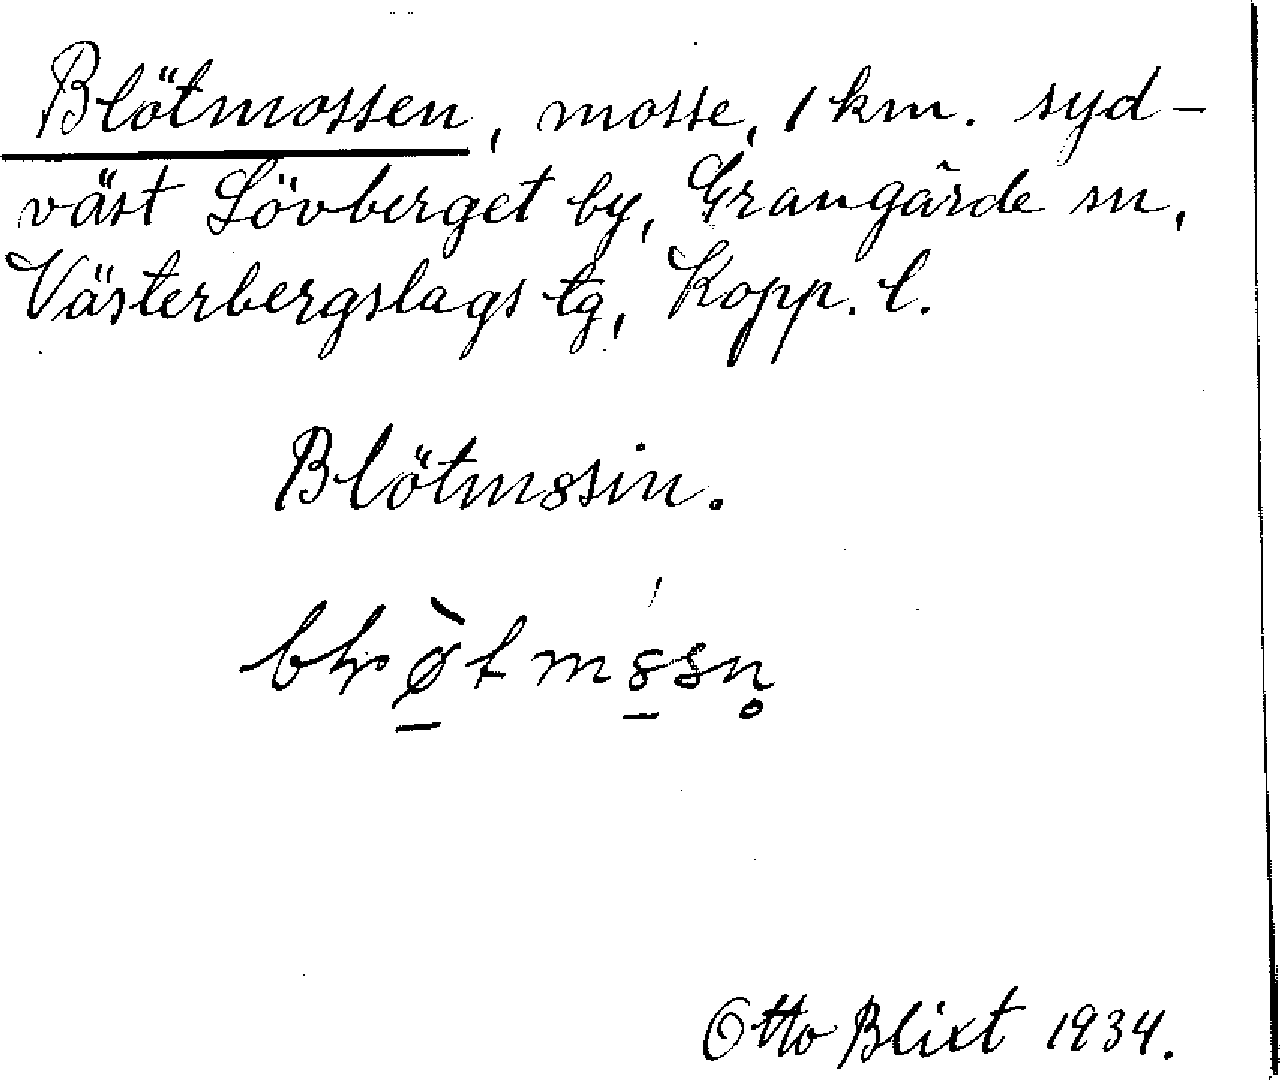 Blötmossen, mosse, 1 km. syd-
väst Lövberget by, Grangärde sn,
Västerbergslags tg, Kopp. l.
Blötmosin.
Otto Blixt 1934.